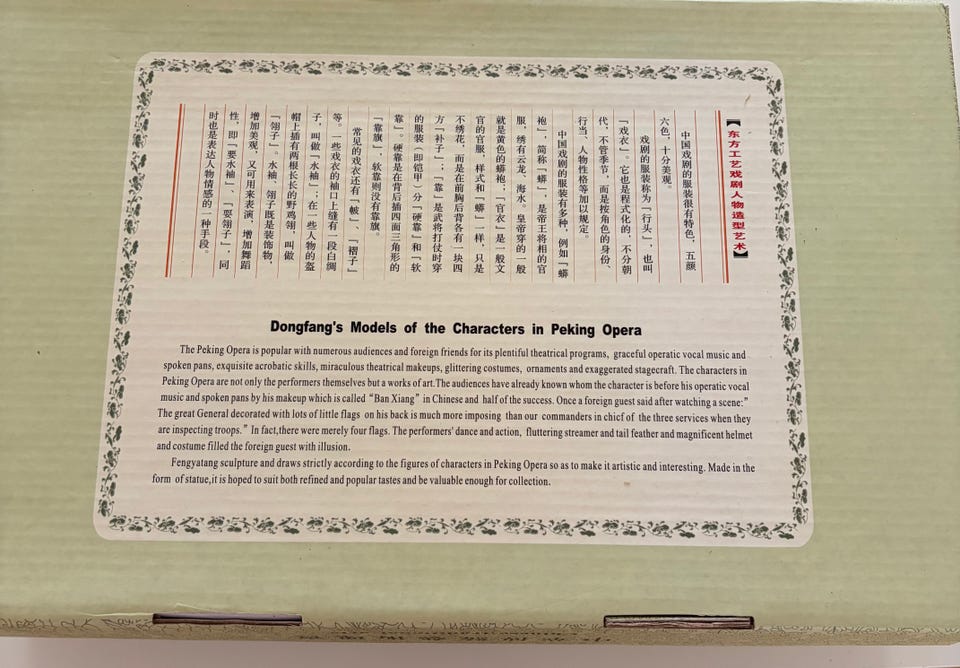 【东方工艺戏剧人物造型艺术】
中国戏剧的服装很有特色，五颜
六色，十分美观。
戏剧的服装称为「行头」，也叫
「戏衣」。它也是程式化的，不分朝
代，不管季节，而是按角色的身份、
行当、人物性格等加以规定。
中国戏剧的服装有多种，例如「蟒
袍」，简称「蟒」，是帝王将相的官
服，绣有云龙、海水。皇帝穿的一般
就是黄色的蟒袍；「官衣」是一般文
官的官服，样式和「蟒」一样，只是
不绣花，而是在前胸后背各有一块四
方「补子」；「靠」是武将打仗时穿
的服装（即铠甲）分「硬靠」和「软
靠」。硬靠是在背后插四面三角形的
「靠旗」，软靠则没有靠旗。
常见的戏衣还有「帔」、「褶子」
等。一些戏衣的袖口上缝有一段白绸
子，叫做「水袖」；在一些人物的盔
帽上插有两根长长的野鸡翎，叫做
「翎子」。水袖、翎子既是装饰物，
增加美观，又可用来表演，增加舞蹈
性，即「要水袖」、「耍翎子」，同
时也是表达人物情感的一种手段。
Dongfang's Models of the Characters in Peking Opera
The Peking Opera is popular with numerous audiences and foreign friends for its plentiful theatrical programs, graceful operatic vocal music and
spoken pans, exquisite acrobatic skills, miraculous theatrical makeups, glittering costumes, ornaments and exaggerated stagecraft. The characters in
Peking Opera are not only the performers themselves but a works of art.The audiences have already known whom the character is before his operatic vocal
music and spoken pans by his makeup which is called “Ban Xiang” in Chinese and half of the success. Once a foreign guest said after watching a scene:”
The great General decorated with lots of little flags on his back is much more imposing than our commanders in chicf of the three services when they
are inspecting troops.” In fact,there were merely four flags. The performers' dance and action, fluttering streamer and tail feather and magnificent helmet
and costume filled the foreign guest with illusion.
Fengyatang sculpture and draws strictly according to the figures of characters in Peking Opera so as to make it artistic and interesting. Made in the
form of statue,it is hoped to suit both refined and popular tastes and be valuable enough for collection.